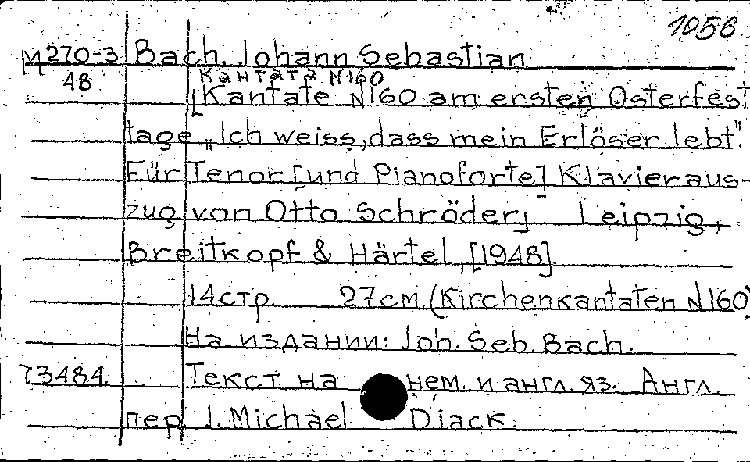 1956
M270-3 Bach. Johann Sebastian
48 Кантата N160
[Kantate N160 am ersten Osterfest
tage „Ich weiss, dass mein Erlöser lebt".
Für Tenor [und Pianoforte] Klavieraus-
zug von Otto Schröder, Leipzig,
Breitkopf & Härtel, [1948].
14 стр 27 см. (Kirchenkantaten N160)
На издании: Joh. Seb. Bach.
73484. Текст на нем. и англ. яз. Англ.
пер. J. Michael Diack.